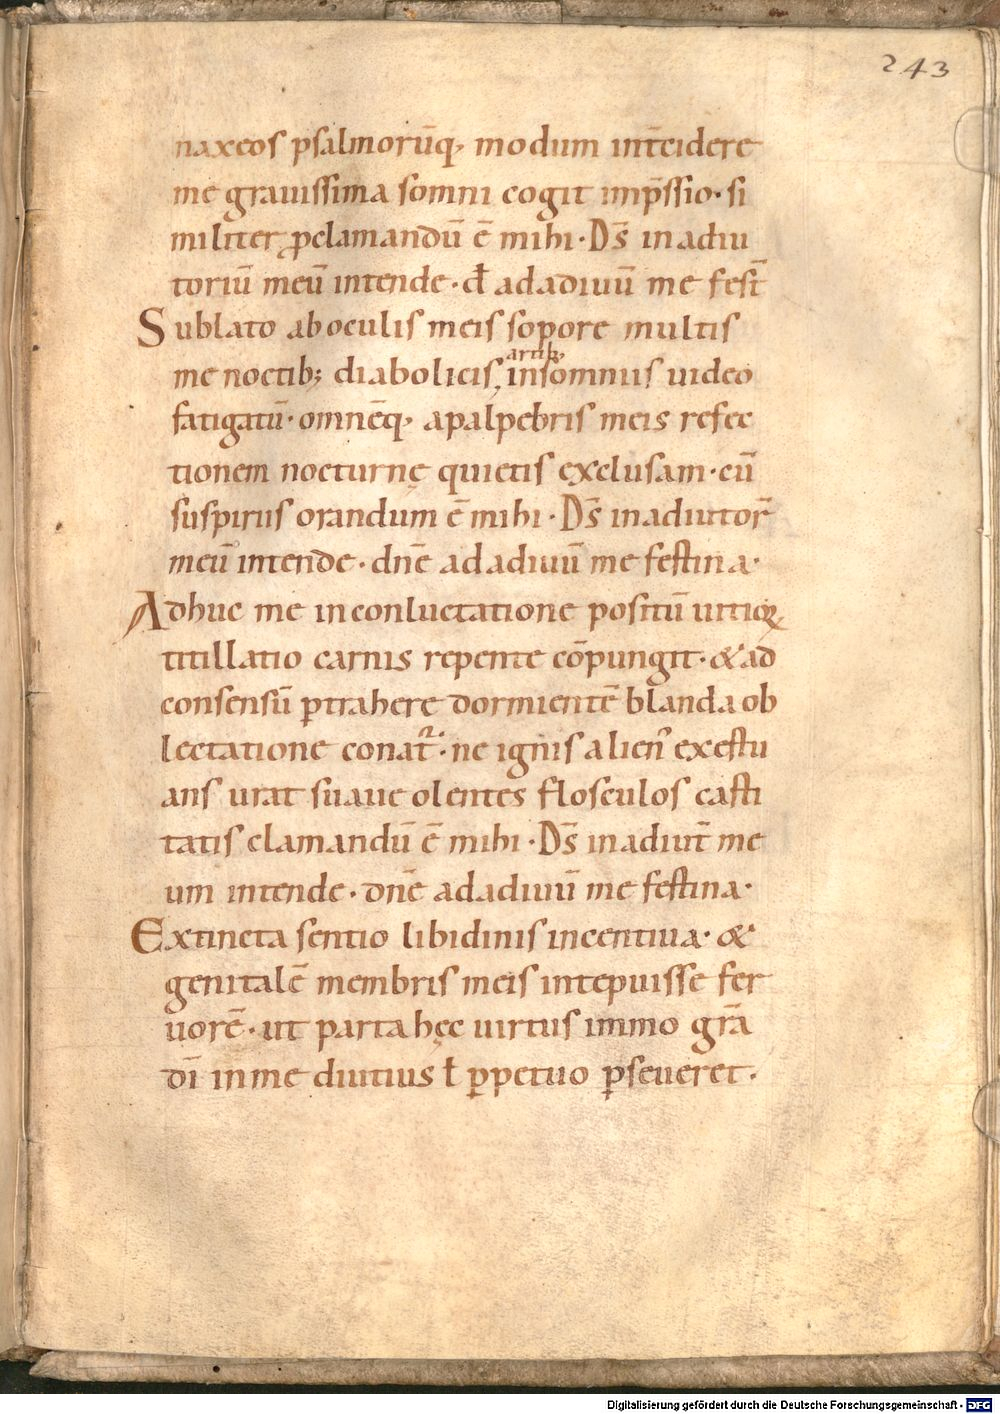 243
naxeos psalmorūq, modum int̄cidere
me grauissima somni cogit imp̄ssio· si
militer ꝓclamandū ē mihi· Ds̄ in adiu
toriū meū intende· d̄ ad adiuuū me fest̄
Sublato ab oculis meis sopore multis
artib,
me noctib; diabolicis, insomnus uideo
fatigatū· omnēq, a palpebris meis refec
tionem nocturnę quietis exclusam· cū
suspiriis orandum ē mihi· Ds̄ in adiutor̄
meū intende· dn̄e ad adiuuū me festina·
Adhuc me in conluctatione positū uitioꝝ
titillatio carnis repente cōpungit· & ad
consensū ptrahere dormientē blanda ob
lectatione conat̃· ne ignis alien᾽ exęstu
ans urat suaue olentes flosculos casti
tatis clamandū ē mihi· Ds̄ in adiut̄ me
um intende· dn̄e ad adiuuū me festina·
Extincta sentio libidinis incentiua· &
genitalē membris meis intepuisse fer
uorē· ut parta hęc uirtus immo gr̄a
dī in me diutius ł ꝑpetuo ꝑseueret·
Digitalisierung gefördert durch die Deutsche Forschungsgemeinschaft - DFG